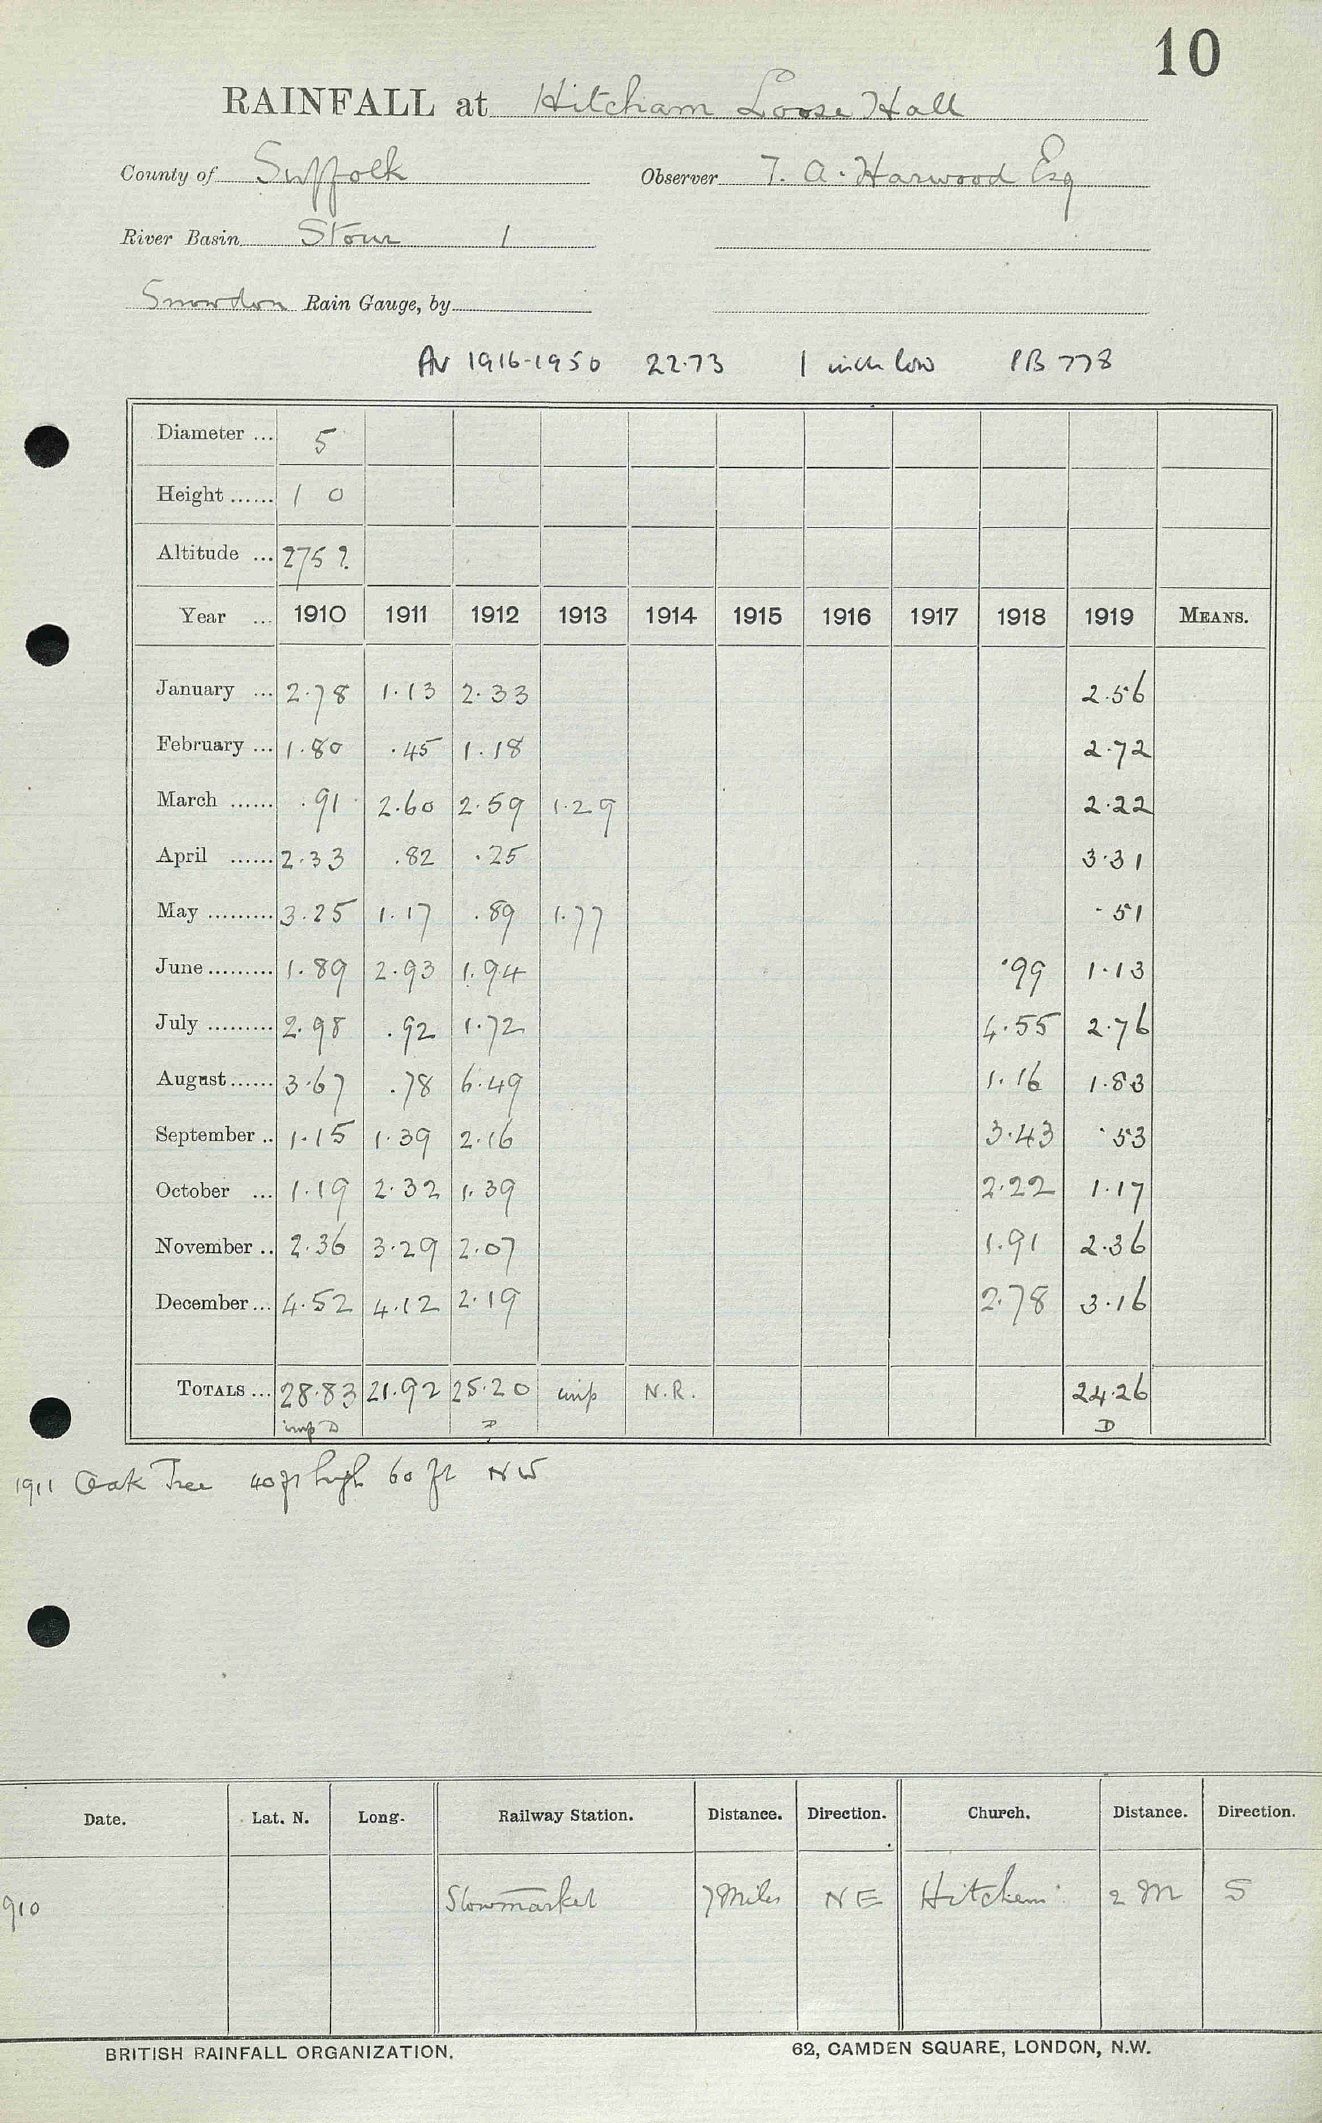 10
RAINFALL at Hitcham Loose Hall
County of Suffolk Observer T. A. Harwood Esq
River Basin Stour 1
Snowdon Rain Gauge, by
Av 1916-1950 22.73 1 inch low PB 778
Diameter ... 5
Height ...... 1 0
Altitude ... 275 ?
Year ... 1910 1911 1912 1913 1914 1915 1916 1917 1918 1919 MEANS.
January ... 2.78 1.13 2.33 2.56
February ... 1.80 .45 1.18 2.72
March ...... .91 2.60 2.59 1.29 2.22
April ...... 2.33 .82 .25 3.31
May ......... 3.25 1.17 .89 1.77 .51
June ......... 1.89 2.93 1.94 .99 1.13
July ......... 2.98 .92 1.72 4.55 2.76
August ...... 3.67 .78 6.49 1.16 1.83
September .. 1.15 1.39 2.16 3.43 .53
October ... 1.19 2.32 1.39 2.22 1.17
November .. 2.36 3.29 2.07 1.91 2.36
December ... 4.52 4.12 2.19 2.78 3.16
TOTALS ... 28.83 21.92 25.20 imp N.R. 24.26
imp D D D
1911 Oak Tree 40 ft high 60 ft NW
Date. Lat. N. Long. Railway Station. Distance. Direction. Church. Distance. Direction.
910 Stowmarket 7 Miles NE Hitcham 2 M S
BRITISH RAINFALL ORGANIZATION. 62, CAMDEN SQUARE, LONDON, N.W.